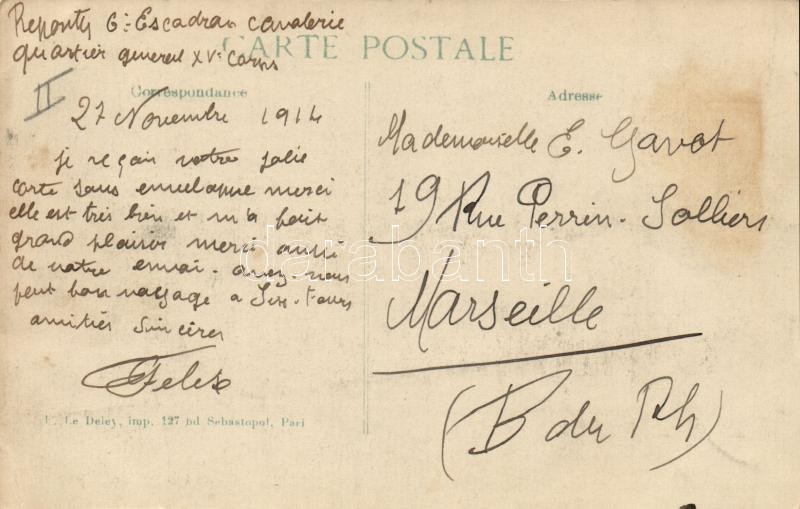 6e Escadron cavalerie
quartier general XVe Corps
CARTE POSTALE
Correspondance
II
27 Novembre 1914
je reçois votre jolie
carte sans envelappe merci
elle est très bien et m'a fait
grand plaisir merci aussi
de votre envoi. avez-vous
feit bon voyage a Six-fours
amitiés sincères
Felix
Le Deley, imp. 127 bd Sebastopol, Pari
Adresse
Mademoiselle E. Gavot
19 Rue Perrin-Solliers
Marseille
(B du Rh)
darabanth